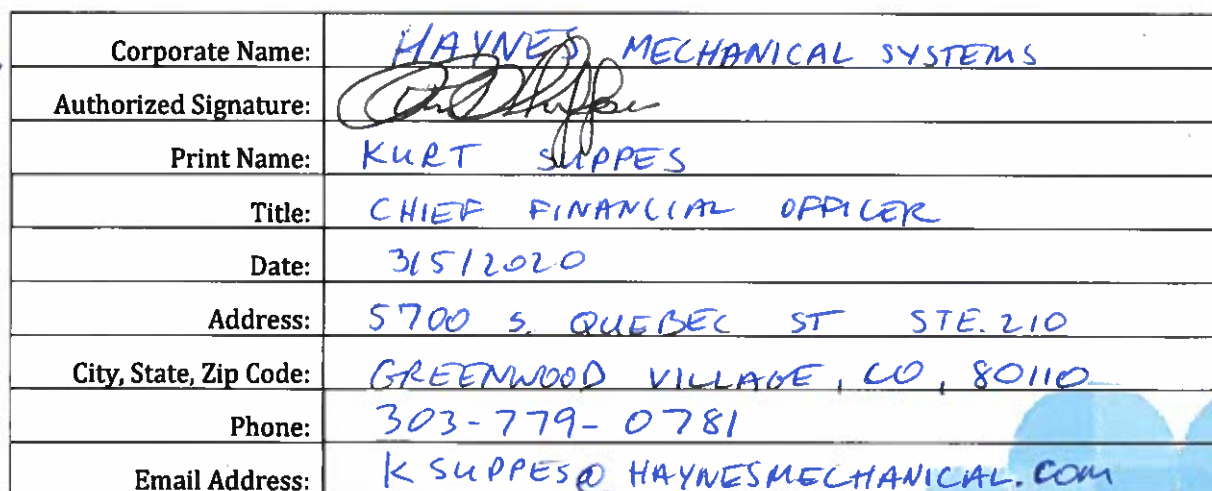 Corporate Name: HAYNES MECHANICAL SYSTEMS
Authorized Signature:
Print Name: KURT SUPPES
Title: CHIEF FINANCIAL OFFICER
Date: 3/5/2020
Address: 5700 S. QUEBEC ST STE. 210
City, State, Zip Code: GREENWOOD VILLAGE, CO, 80110
Phone: 303-779-0781
Email Address: KSUPPES@HAYNESMECHANICAL.COM